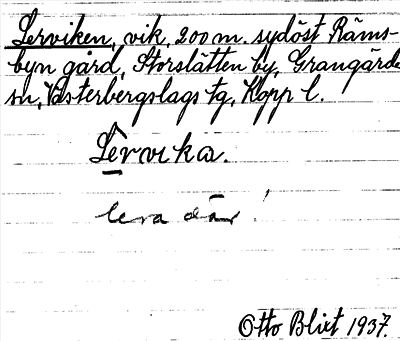 Lerviken, vik, 200 m. sydöst Räms-
byn gård, Storslätten by, Grangärde
sn, Västerbergslags tg, Kopp l.
Lèrvika.
lera där!
Otto Blixt 1937.